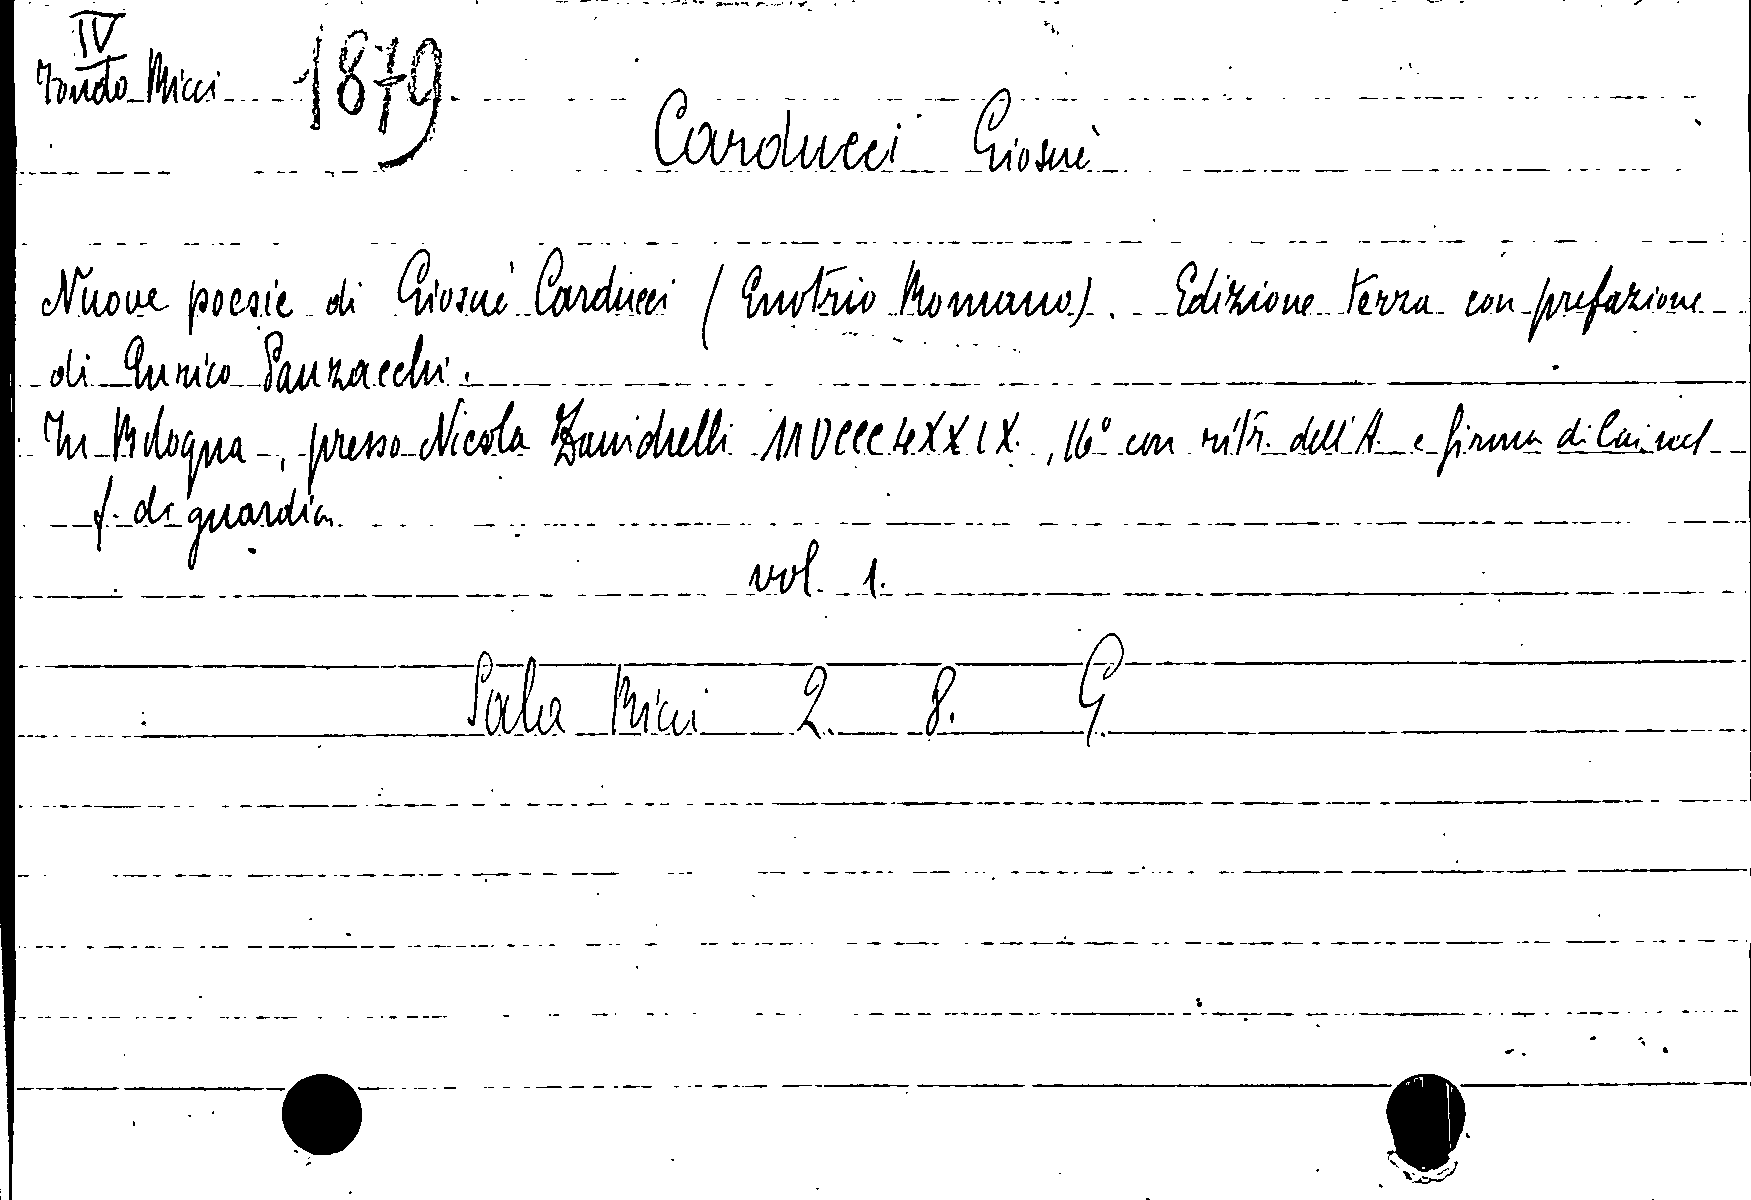 IV
Fondo Ricci 1879
Carducci Giosuè
Nuove poesie di Giosuè Carducci (Enotrio Romano). Edizione terza con prefazione
di Enrico Panzacchi.
In Bologna, presso Nicola Zanichelli MDCCCLXXIX, 16° con ritr. dell'A. e firma di lui nel
f. di guardia
vol. 1.
Sala Ricci 2. 8. G